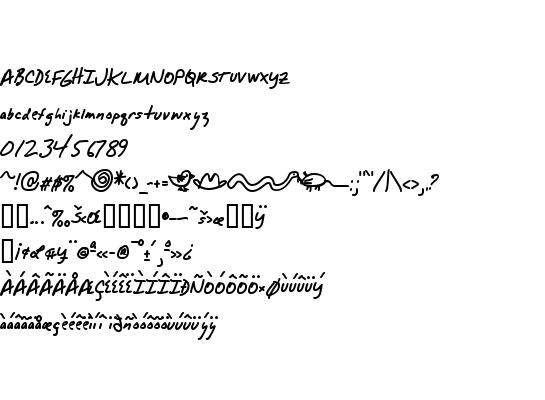 ABCDEFGHIJKLMNOPQRSTUVWXYZ
abcdefghijklmnopqrstuvwxyz
0123456789
~!@#$%^ * ()_-+= :;"'^'/|\<>,.?
...ˆ‰ŠŒ ~šœ Ÿ
¡¢£¤¥¨©ª«-®¯°±´¸º»¿
ÀÁÂÃÄÅÆÇÈÉÊËÌÍÎÏÐÑÒÓÔÕÖ×ØÙÚÛÜÝ
àáâãäåæçèéêëìíîïðñòóôõöùúûüýÿ